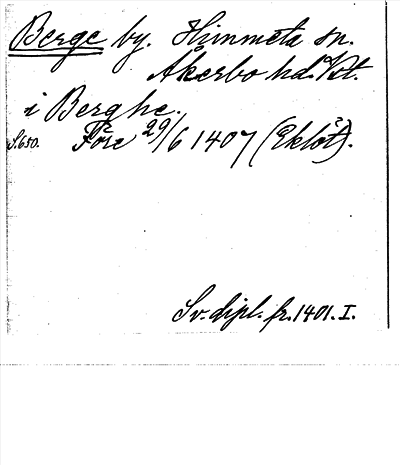 Berge by. Himmeta sn.
Åkerbo hd. Vstm.
i Berghe.
S.650. Före 29/6 1407 (Eklöt).
Sv. dipl. fr. 1401. I.